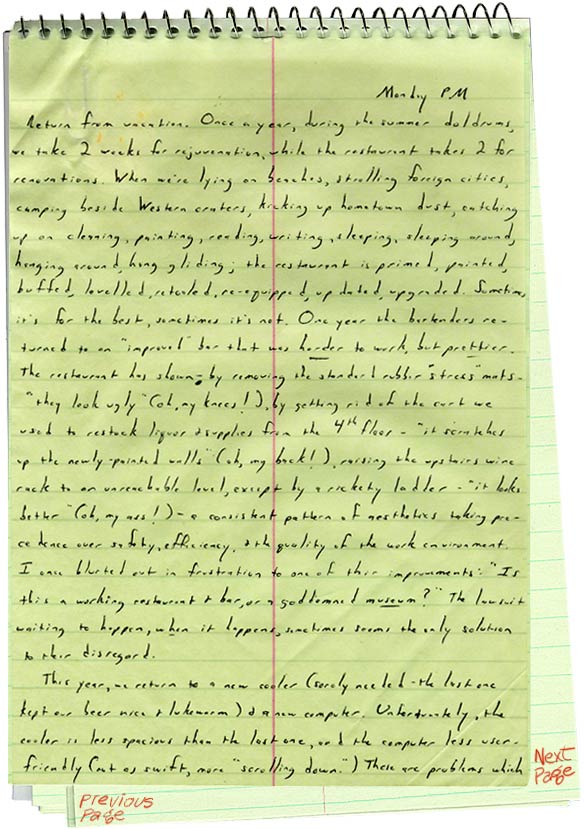 Monday PM
Return from vacation. Once a year, during the summer doldrums,
we take 2 weeks for rejuvenation, while the restaurant takes 2 for
renovations. When we're lying on beaches, strolling foreign cities,
camping beside Western craters, kicking up hometown dust, catching
up on cleaning, painting, reading, writing, sleeping, sleeping around,
hanging around, hang gliding; the restaurant is primed, painted,
buffed, levelled, retooled, re-equipped, updated, upgraded. Sometimes
it's for the best, sometimes it's not. One year the bartenders re-
turned to an "improved" bar that was harder to work, but prettier.
The restaurant has shown, - by removing the standard rubber "stress" mats -
"they look ugly" (oh, my knees!), by getting rid of the cart we
used to restock liquor & supplies from the 4th floor - "it scratches
up the newly-painted walls" (oh, my back!), raising the upstairs wine
rack to an unreachable level, except by a rickety ladder - "it looks
better" (oh, my ass!) - a consistent pattern of aesthetics taking pre-
cedence over safety, efficiency, & the quality of the work environment.
I once blurted out in frustration to one of their improvements: "Is
this a working restaurant & bar, or a goddamned museum?" The lawsuit
waiting to happen, when it happens, sometimes seems the only solution
to their disregard.
This year, we return to a new cooler (sorely needed - the last one
kept our beer nice & lukewarm) & a new computer. Unfortunately, the
cooler is less spacious than the last one, and the computer less user-
friendly (not as swift, more "scrolling down.") These are problems which
Next
Page
Previous
Page